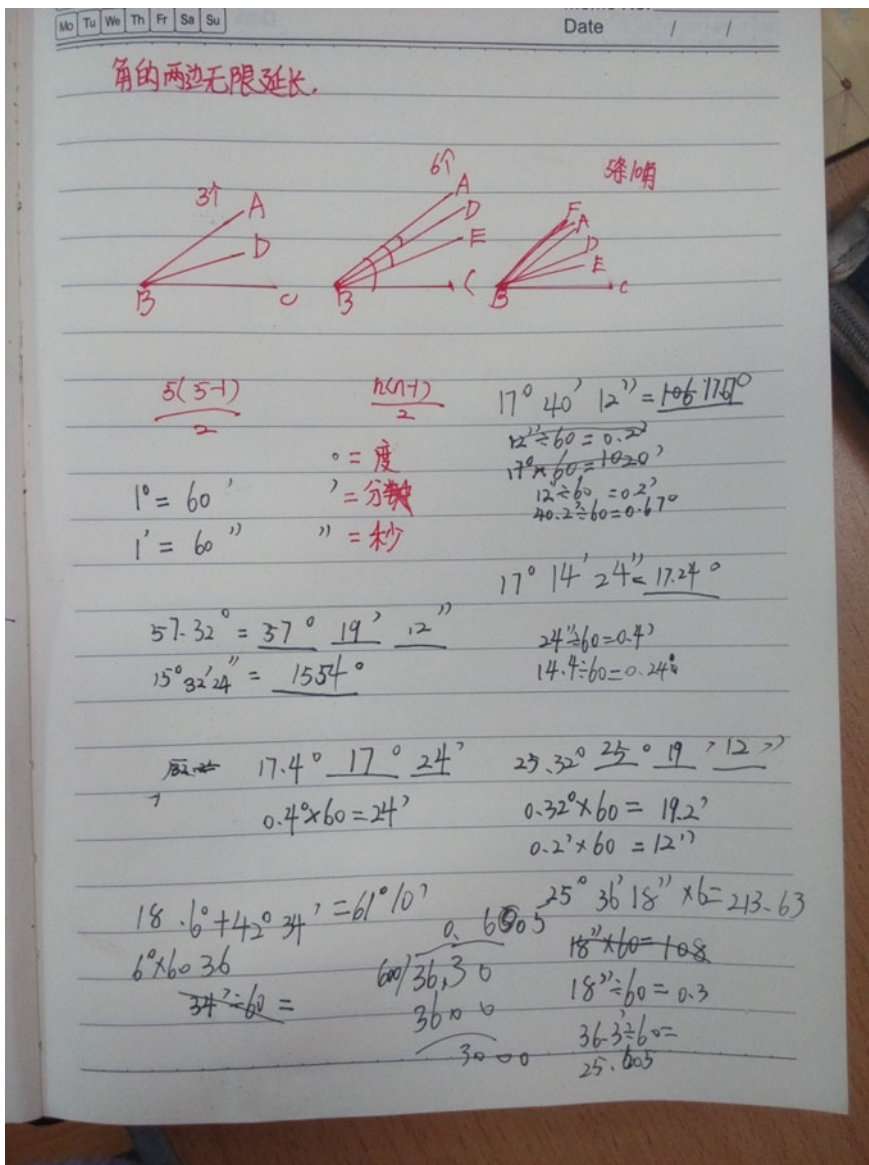 Mo Tu We Th Fr Sa Su
Date / /
角的两边无限延长.
3个
A
D
B
C
6个
A
D
E
B
C
5条10角
F
A
D
E
B
C
5(5-1)/2
n(n-1)/2
17° 40′ 12″ = 17.67°
12″÷60 = 0.2′
17°×60 = 1020′
12″÷60 = 0.2′
40.2′÷60=0.67°
° = 度
1° = 60′
′ = 分
1′ = 60″
″ = 秒
17° 14′ 24″ = 17.24°
24″÷60=0.4′
14.4÷60=0.24°
57.32° = 57° 19′ 12″
15°32′24″ = 1554°
17.4° 17° 24′
0.4°×60=24′
25.32° 25° 19′ 12″
0.32°×60 = 19.2′
0.2′×60 = 12″
18.6°+42°34′=61°10′
6°×60 36
34′÷60 =
0.6005
600/36.30
3600
3000
25° 36′ 18″ ×6=213.63
18″×60=108
18″÷60=0.3
36.3′÷60=
25.605